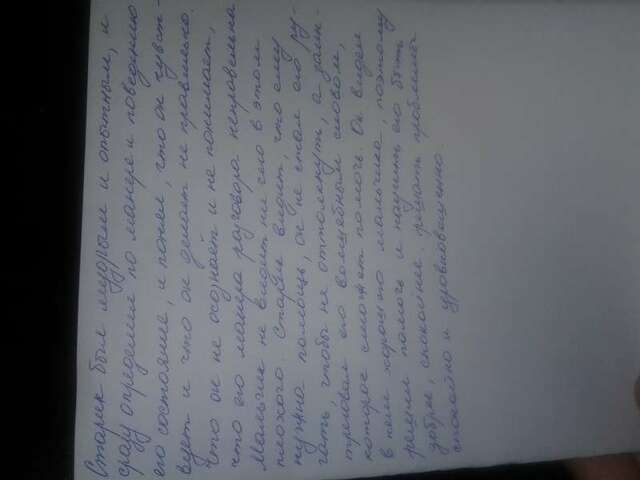 Старик был мудрым и опытным, и
сразу определил по манере и поведению
его состояние, и понял, что он чувст-
вует и что он делает не правильно.
Что он не осознаёт и не понимает,
что его манера разговора неправильна
Мальчик не видит ни чего в этом
плохого. Старик видит, что ему
нужна помощь, он не стал его ру-
гать, чтобы не оттолкнуть, а заин-
триговал его волшебным словом,
которое сможет помочь. Он видел
в нем хорошего мальчика, поэтому
решил помочь и научить его быть
добрее, спокойнее. решать проблемы
спокойно и уровновешенно.